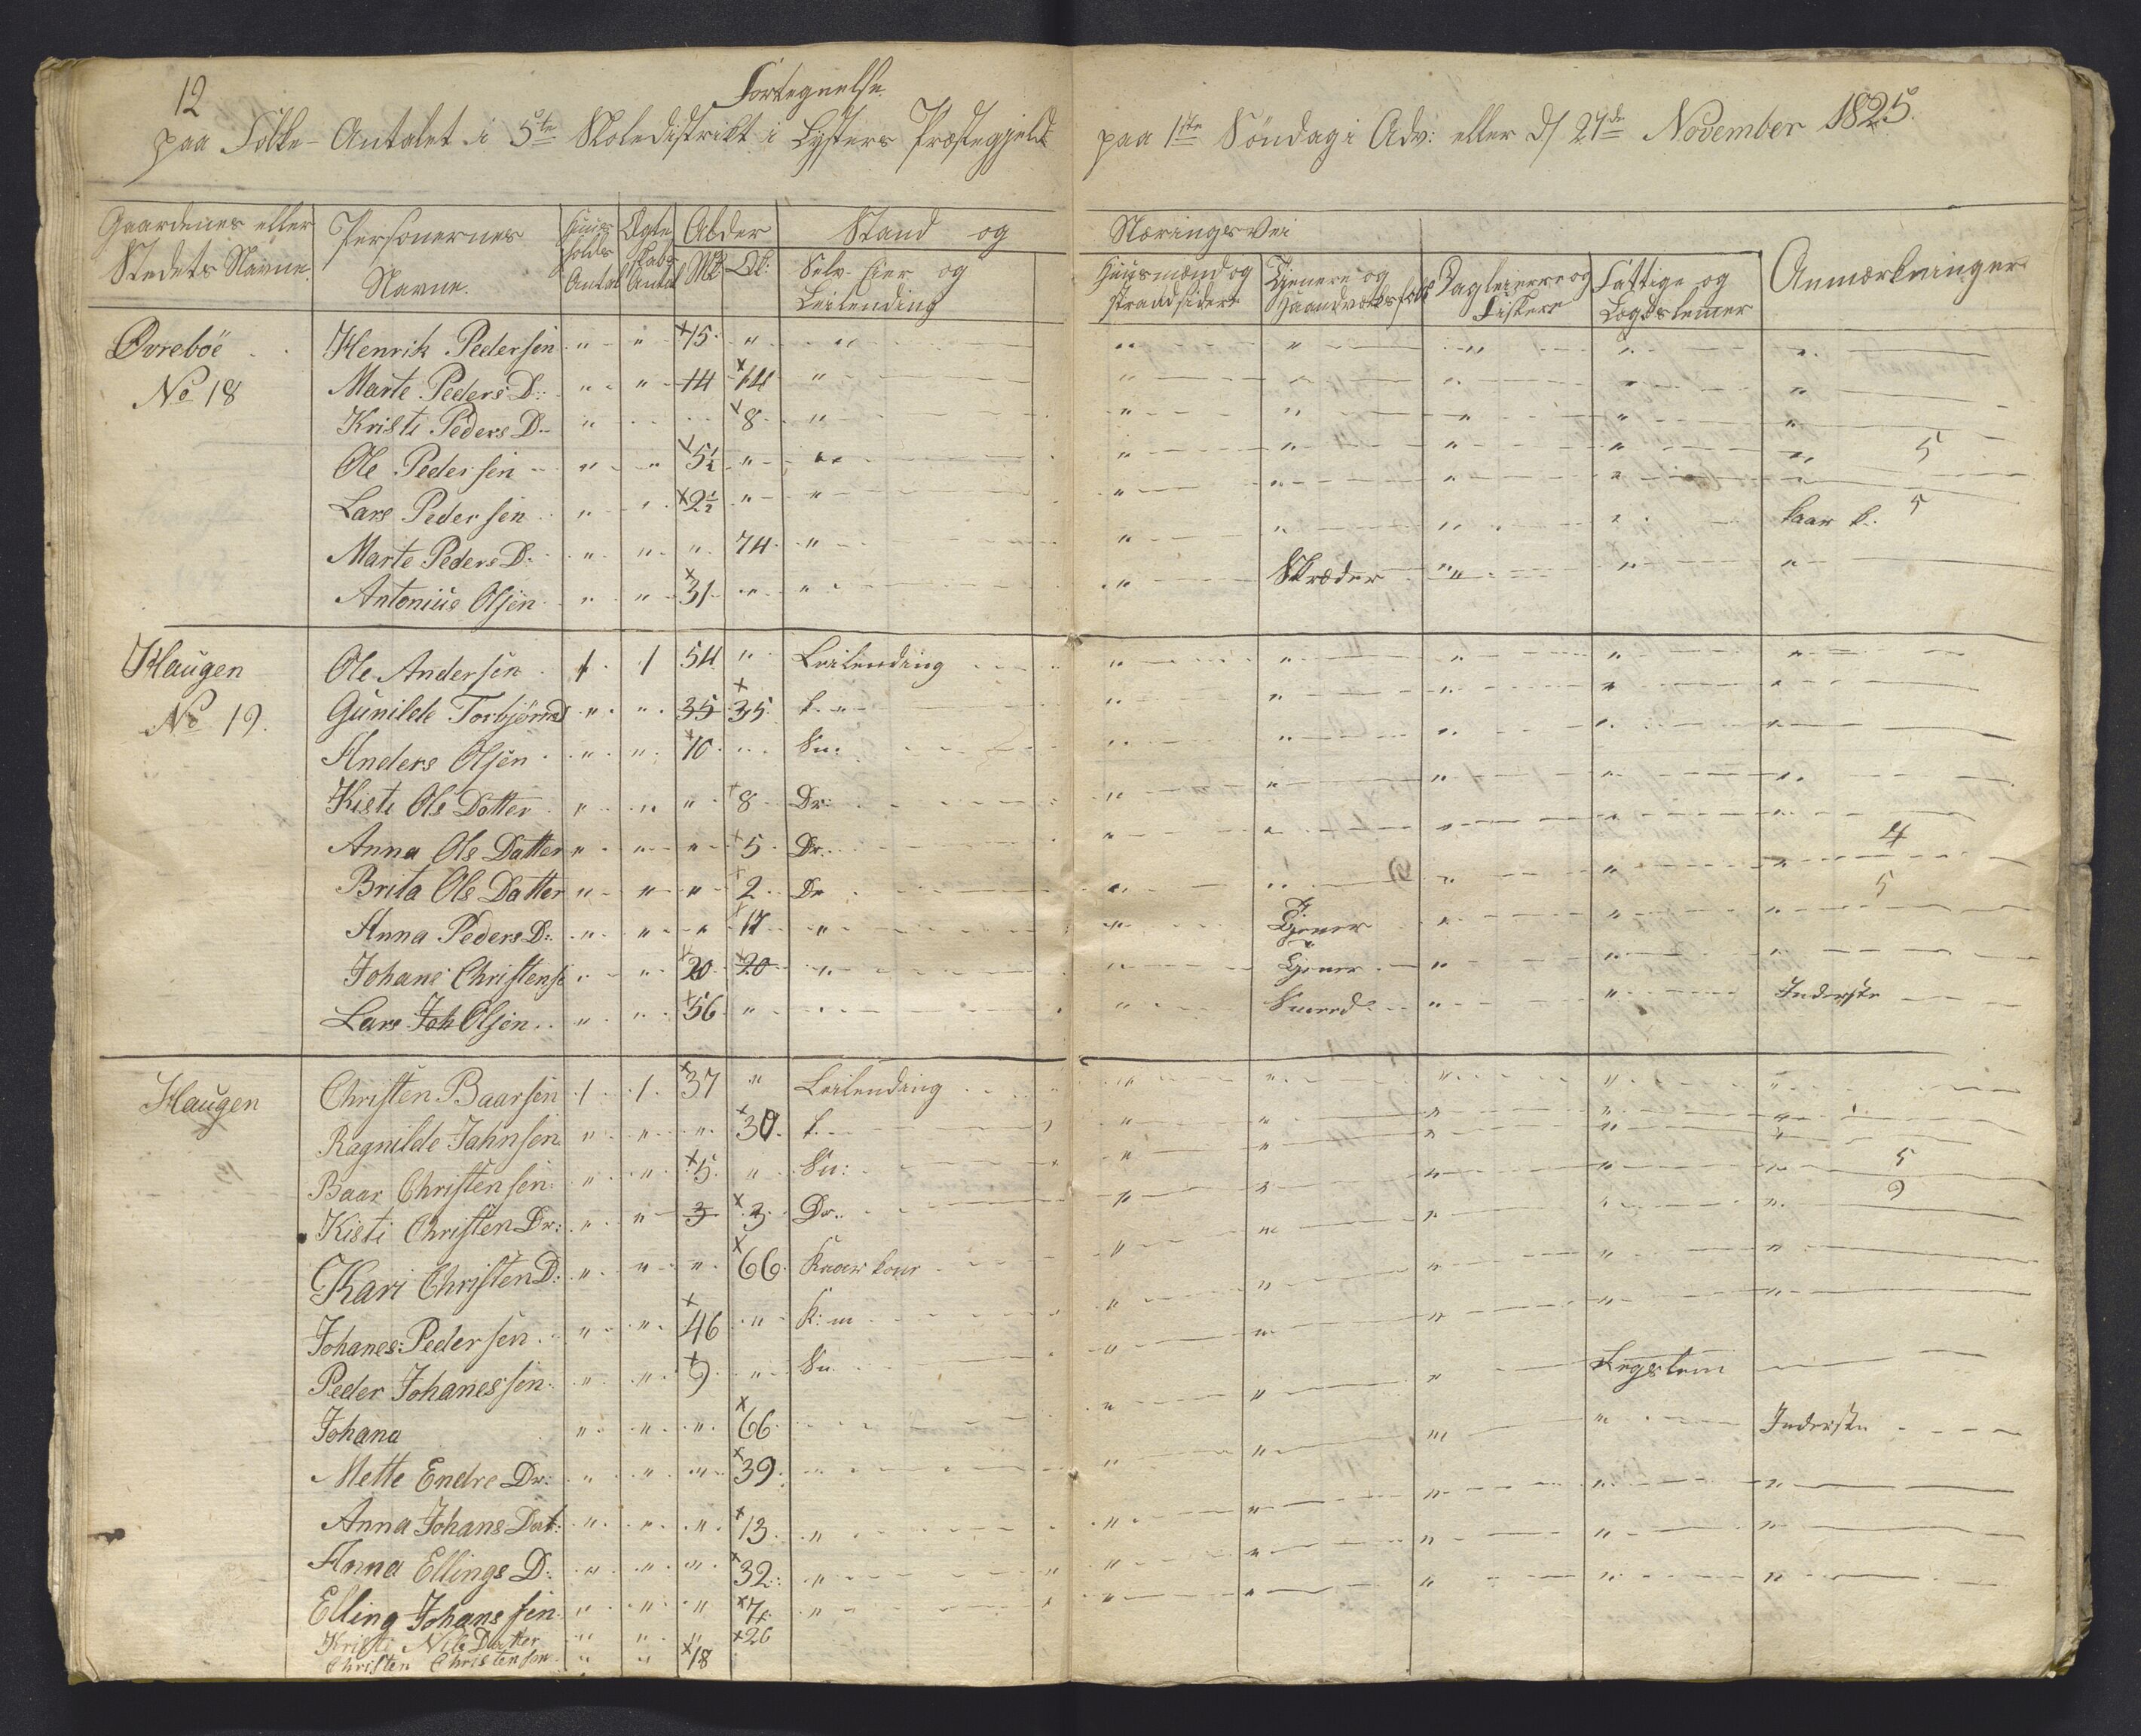 12
Fortegnelse
paa Folke-Antalet i 5te Skoledistrikt i Lysters Præstegjeld paa 1ste Söndag i Adv: eller d/ 27de November 1825.
Gaardenes eller Stedets Navne. Personernes Navne. Huus holds Antal Ægte skabs Antal Alder Mk: Qk: Stand og Nærings Vei
Selv-Eier og Leilending Huusmænd og Strandsidere Tjenere og Haandværksfolk Dagleiere og Fiskere Fattige og Lægdslemer Anmærkninger
Øvreböe Henrik Pedersen " " 15 " "
No 18 Marte Peders D: " " 14 14 "
Kristi Peders D " 8 "
Ole Pedersen " " 5½ " " 5
Lars Pedersen " " 2½ " " 5
Marte Peders D. " " " 74 " kaar k.
Antonius Olsen " " 31 " " Skræder
Haugen Ole Andersen 1 1 54 " Leilending
No 19. Gunilde Torbjörns D " " 35 35 k. "
Anders Olsen " " 10 " Sn:
Kisti Ols Dotter " " " 8 Dr:
Anna Ols Datter " " " 5 Dr. 4
Brita Ols Datter " " " 2 Dr 5
Anna Peders D: " " " 17 " Tjener
Johans Christens " " 20 20 " Tjener
Lars Joh Olsen " " 56 " Smed Inderste
Haugen Christen Baarsen 1 1 37 " Leilending
Ragnilde Jahnsen " " " 30 k.
Baar Christensen " " 5 " Sn: 5
Kisti Christen Dr: " " 3 3 Dr. 2
Kari Christen D: " " " 66 Kaar kone
Johanes Pedersen " " 46 " K: m
Peder Johanessen " " 9 " Sn.
Johana " " " 66 Lægslem
Mette Endre Dr: " " " 39 Inderste
Anna Johans Dat: " " " 13 "
Anna Ellings D: " " " 32 "
Elling Johanssen " " " 7 "
Kristi Nils Datter " " " 26
Christen Christensen " " 18